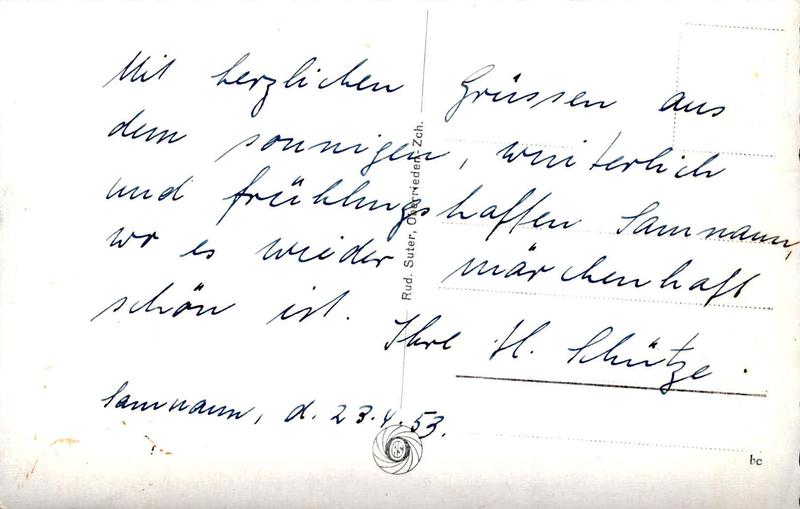 Mit herzlichen Grüssen aus
dem sonnigen, winterlich
und frühlingshaften Samnaun,
wo es wieder märchenhaft
schön ist.
Ihre H. Schütze.
Samnaun, d. 23.4.53.
Rud. Suter, Oberrieden-Zch.
bc